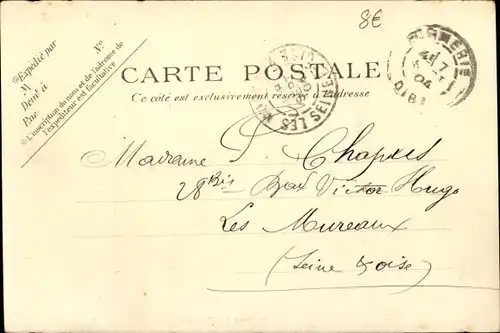 8€
Expédié par
M
Demt à
Rue
N°
L'inscription du nom et de l'adresse de
l'expéditeur est facultative
CARTE POSTALE
Ce côté est exclusivement réservé à l'adresse
Madame P. Chapuis
28 Bis Victor Hugo
Les Mureaux
(Seine & Oise)